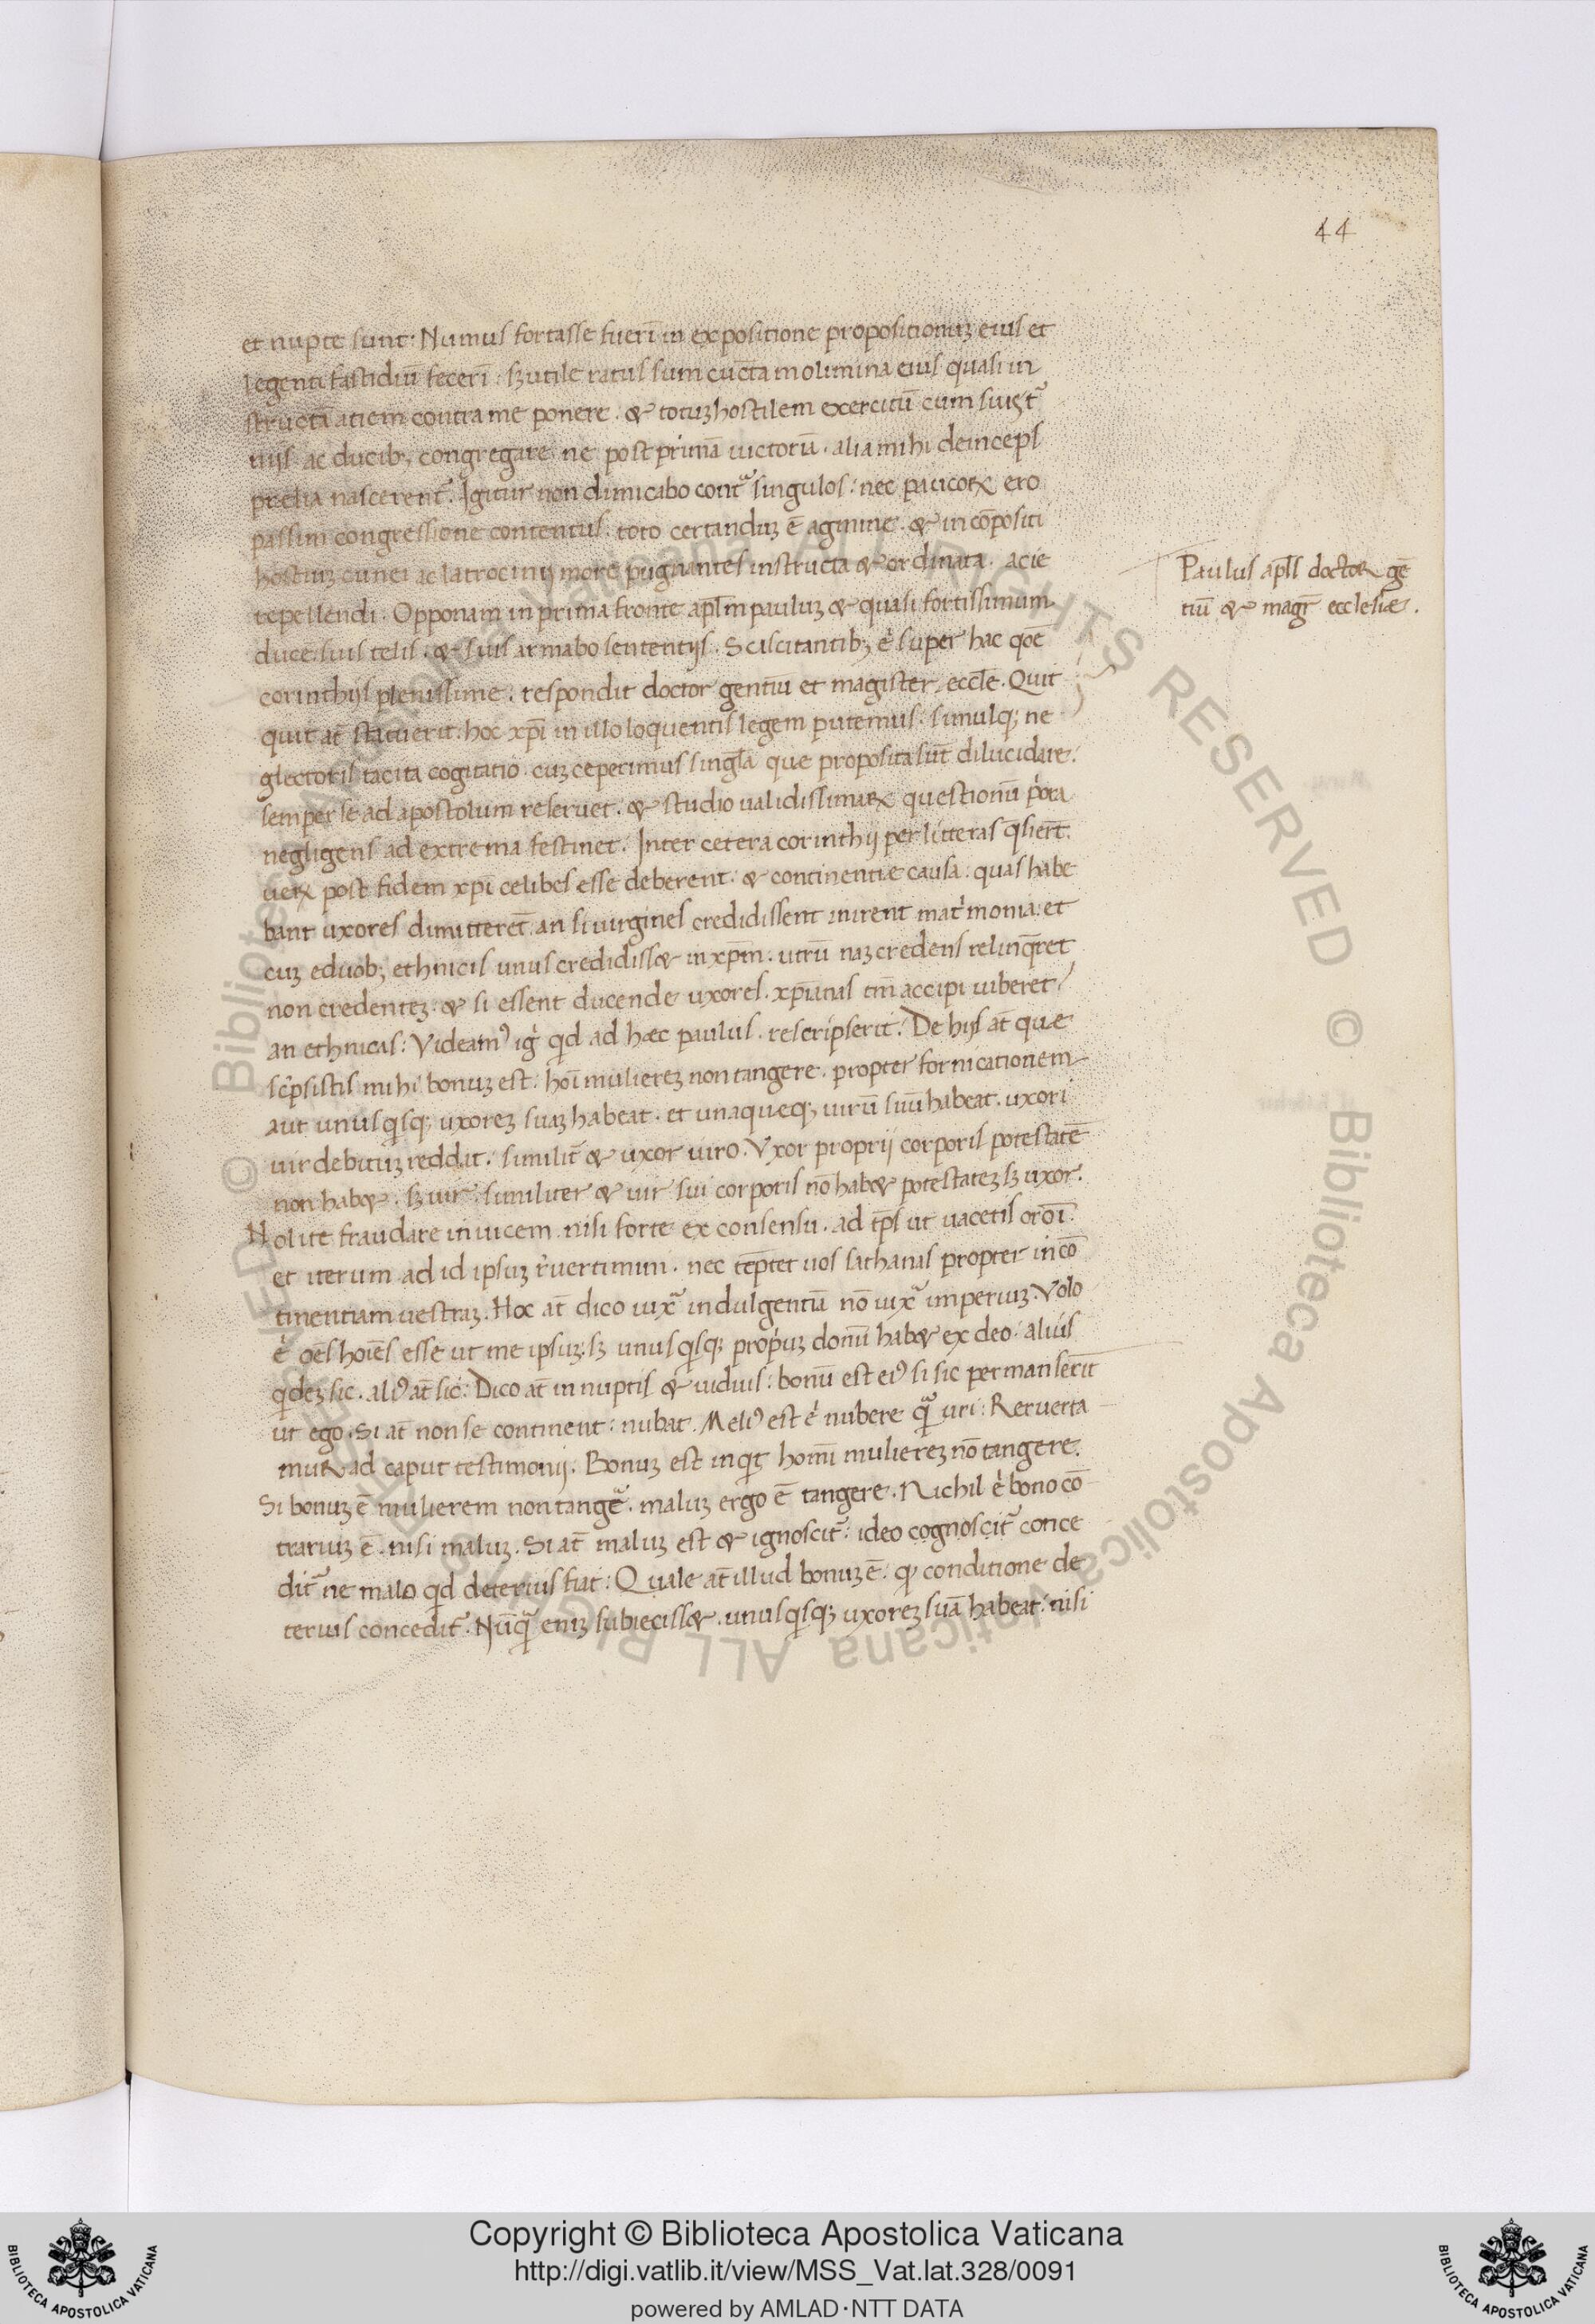 44
et nupte sunt. Nimius fortasse fuerī in expositione propositionuꝫ eius et
legenti fastidiū fecerī: sꝫ utile ratus sum cūcta molimina eius quasi in
structā atiem contra me ponere. & totuꝫ hostilem exercitū cum suis t᷑
nijs ac ducibꝫ congregare ne post primā uictoriā. alia mihi deinceps
prelia nascerent᷑. Igitur non dimicabo contᵃ singulos: nec paucoꝝ ero
passim congressione contentus. toto certanduꝫ ē agmine. & incōpositi
hostiuꝫ cunei ac latrocinij more pugnantes instructa & ordinata. acie
repellendi. Opponam in prima fronte apl̄m pauluꝫ & quasi fortissimum
duce. suis telis. & suis armabo sententijs. Sciscitantibꝫ .n. super hac qōē
corinthijs plenissime. respondit doctor gentiū et magister eccl̄e. Quit
quit at̄ statuerit. hoc xp̄i in illo loquentis legem putemus. simulqꝫ ne
glectoris tacita cogitatio. cuꝫ ceperimus singl̄a que proposita sūt dilucidare.
semper se ad apostolum reseruet. & studio ualidissimaꝝ questionū pͥora
negligens ad extrema festinet. Inter cetera corinthij per litteras qͥsiert̄.
utꝝ post fidem xp̄i celibes esse deberent. & continentie causa: quas habe
bant uxores dimitteret̄. an si uirgines credidissent inirent matͥmonia. et
cuꝫ eduobꝫ ethnicis unus credidiss& in xp̄m. utrū naꝫ credens relinq̄ret
non credenteꝫ. & si essent ducende uxores. xp̄ianas tm̄ accipi iuberet
an ethnicas: Videamꝰ igͥ qͥd ad hæc paulus. rescripserit. De hijs at̄ que
scͥpsistis mihi bonuꝫ est. hoī muliereꝫ non tangere. propter fornicationem
aut unusqͥsqꝫ uxoreꝫ suaꝫ habeat. et unaqueqꝫ uirū suū habeat. uxori
uir debituꝫ reddat. similit᷑ & uxor uiro. Vxor proprij corporis potestatē
non hab&. sꝫ uir. similiter & uir sui corporis nō hab& potestateꝫ sꝫ uxor.
Nolite fraudare inuicem nisi forte ex consensu. ad tp̄s ut uacetis orōī.
et iterum ad id ipsuꝫ rͥuertimini. nec tēptet uos sathanas propter incō
tinentiam uestraꝫ. Hoc at̄ dico iuxᵃ indulgentiā nō iuxᵃ imperiuꝫ. Volo
.n. oēs hoīes esse ut me ipsuꝫ. sꝫ unusqͥsqꝫ propͥuꝫ donū hab& ex deo: alius
qͥdeꝫ sic. aliꝰ at̄ sic: Dico at̄ in nuptis & uiduis: bonū est eiꝰ si sic permanserīt
ut ego. Si at̄ non se continent: nubāt. Meliꝰ est .n. nubere qᵃ̄ uri: Reruerta
muꝝ ad caput testimonij. Bonuꝫ est inqͥt homī muliereꝫ nō tangere.
Si bonuꝫ ē mulierem non tangē. maluꝫ ergo ē tangere. Nichil .n. bono cō
trariuꝫ ē. nisi maluꝫ. Si at̄ maluꝫ est & ignoscit᷑: ideo cognoscit᷑ conce
dit᷑ ne malo qͥd deterius fiat: Quale at̄ illud bonuꝫ ē. qͩ conditione de
terius concedit᷑. Nūqᵃ̄ eniꝫ subieciss&. unusqͥsqꝫ uxoreꝫ suā habeat. nisi
Paulus apl̄s doctoꝝ gē
tiū & magr̄ ecclesie.
© Biblioteca Apostolica Vaticana ALL RIGHTS RESERVED
Copyright © Biblioteca Apostolica Vaticana
http://digi.vatlib.it/view/MSS_Vat.lat.328/0091
powered by AMLAD·NTT DATA
BIBLIOTECA APOSTOLICA VATICANA
BIBLIOTECA APOSTOLICA VATICANA